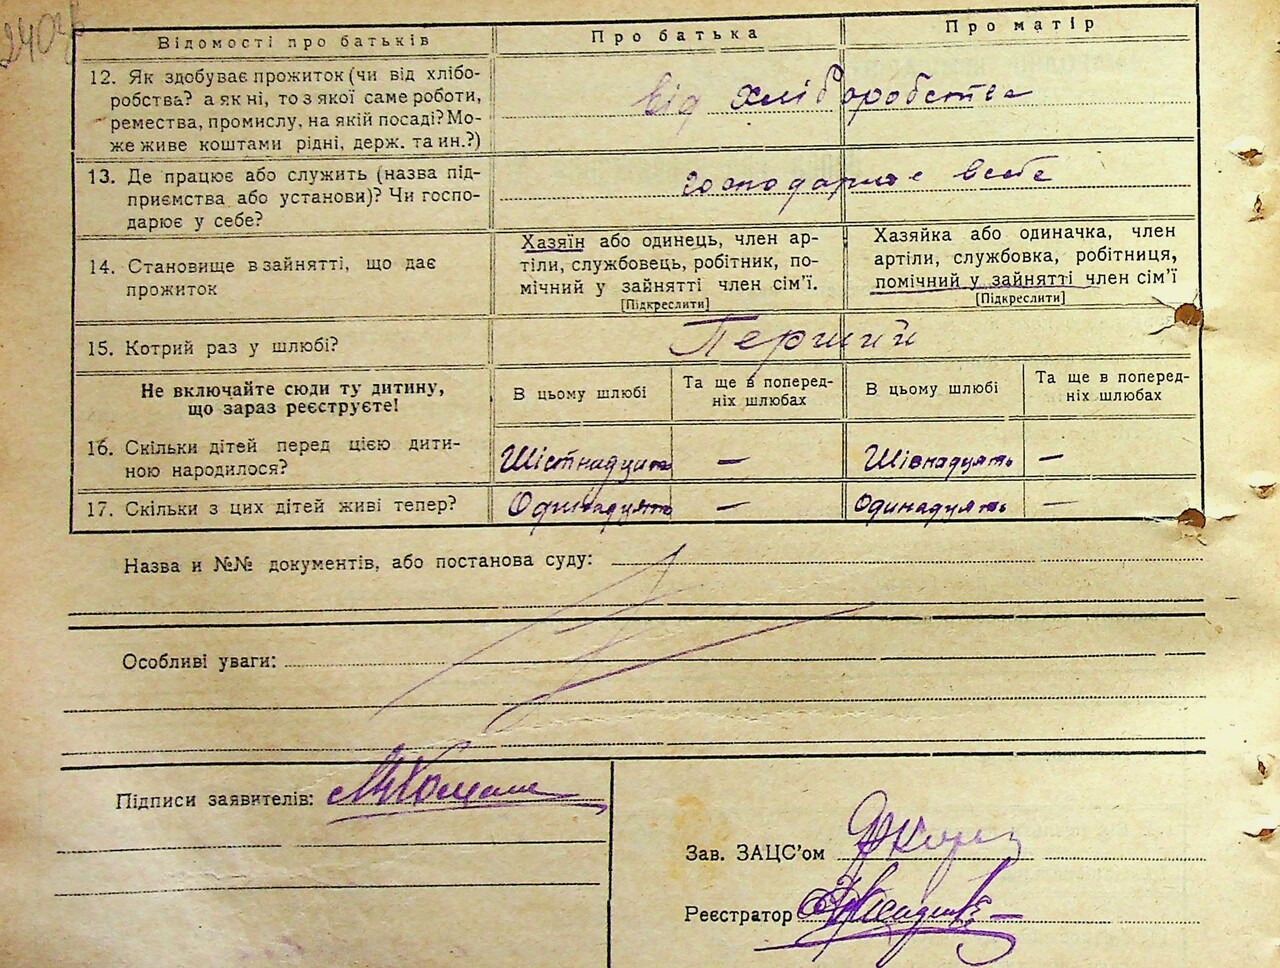 240
Відомості про батьків
Про батька
Про матір
12. Як здобуває прожиток (чи від хлібо-
робства? а як ні, то з якої саме роботи,
ремества, промислу, на якій посаді? Мо-
же живе коштами рідні, держ. та ин.?)
від хліборобства
13. Де працює або служить (назва під-
приємства або установи)? Чи госпо-
дарює у себе?
господарює в себе
14. Становище в зайнятті, що дає
прожиток
Хазяїн або одинець, член ар-
тіли, службовець, робітник, по-
мічний у зайнятті член сім'ї.
[Підкреслити]
Хазяйка або одиначка, член
артіли, службовка, робітниця,
помічний у зайнятті член сім'ї
[Підкреслити]
15. Котрий раз у шлюбі?
Перший
Не включайте сюди ту дитину,
що зараз реєструєте!
В цьому шлюбі
Та ще в поперед-
ніх шлюбах
В цьому шлюбі
Та ще в поперед-
ніх шлюбах
16. Скільки дітей перед цією дити-
ною народилося?
Шістнадцять
—
—
17. Скільки з цих дітей живі тепер?
Одинадцять
—
Одинадцять
—
Назва и №№ документів, або постанова суду:
Особливі уваги:
Підписи заявителів:
Зав. ЗАЦС'ом
Реєстратор